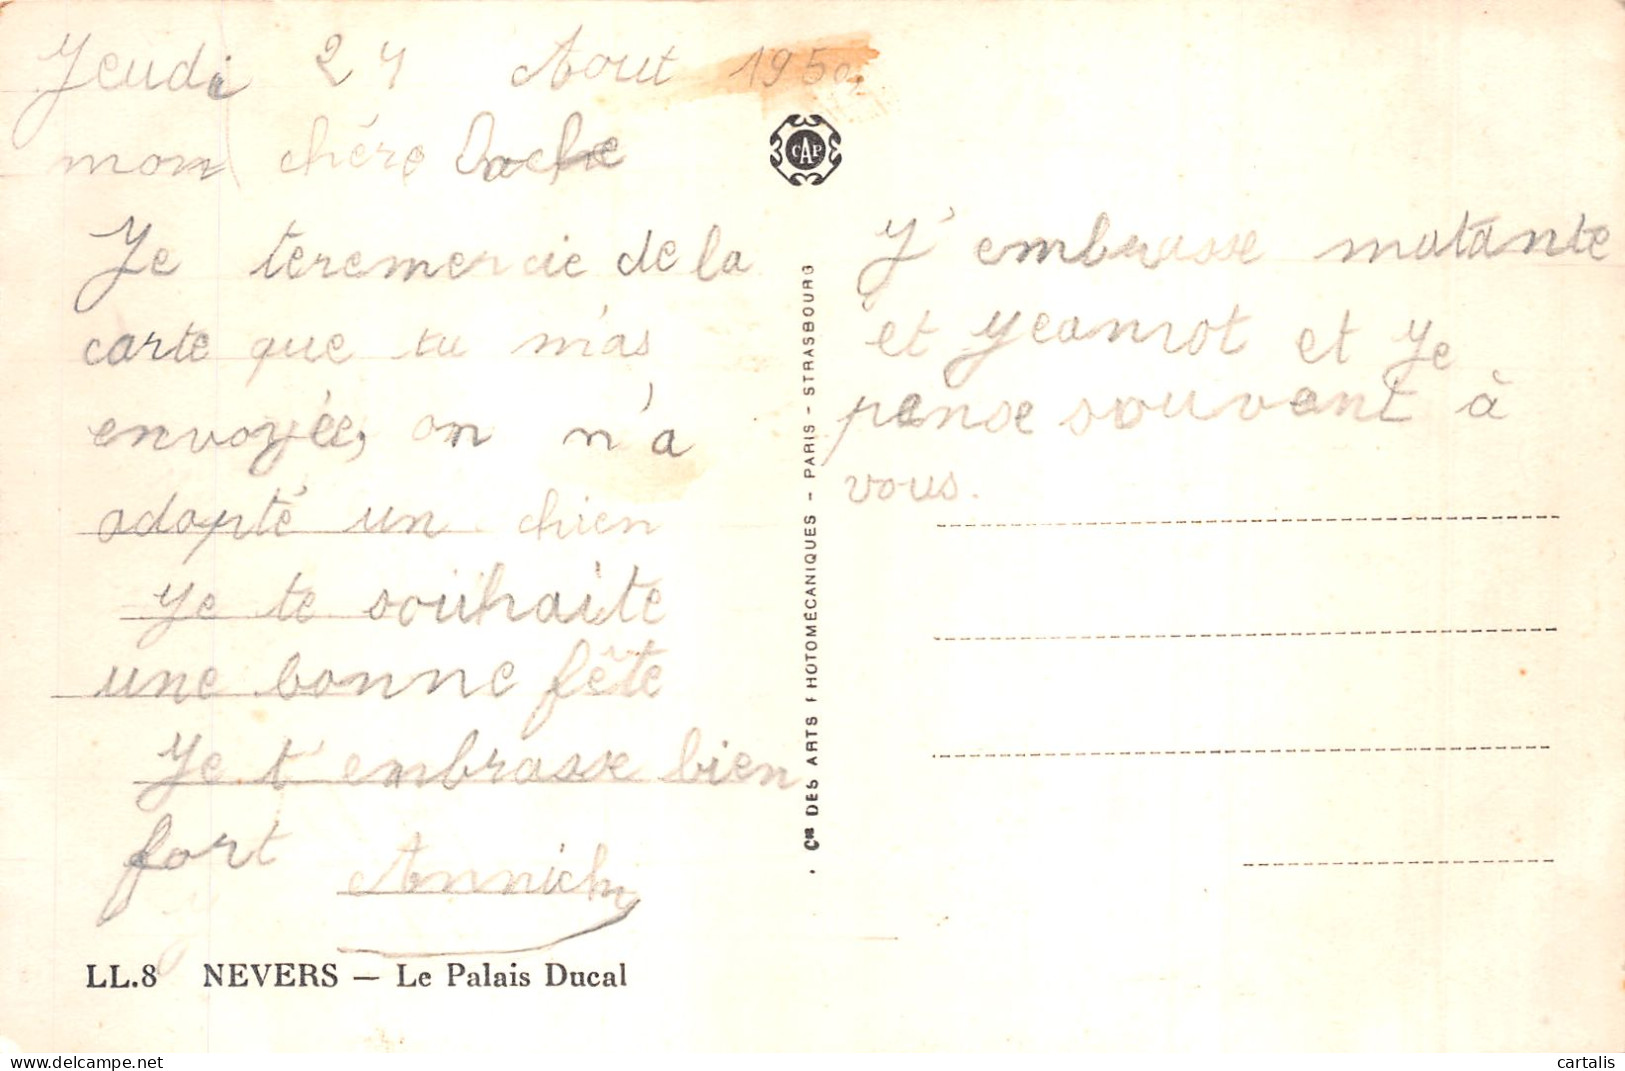 Jeudi 24 Aout 1950
mon chére
Je teremercie de la
carte que tu m'as
envoyée, on n'a
adopté un chien
Je te souhaite
une bonne fête
Je t'embrasse bien
fort
LL.8 NEVERS — Le Palais Ducal
CAP
Cie DES ARTS PHOTOMÉCANIQUES - PARIS - STRASBOURG
J'embrasse matante
et Jeannot et Je
pense souvent à
vous.
cartalis